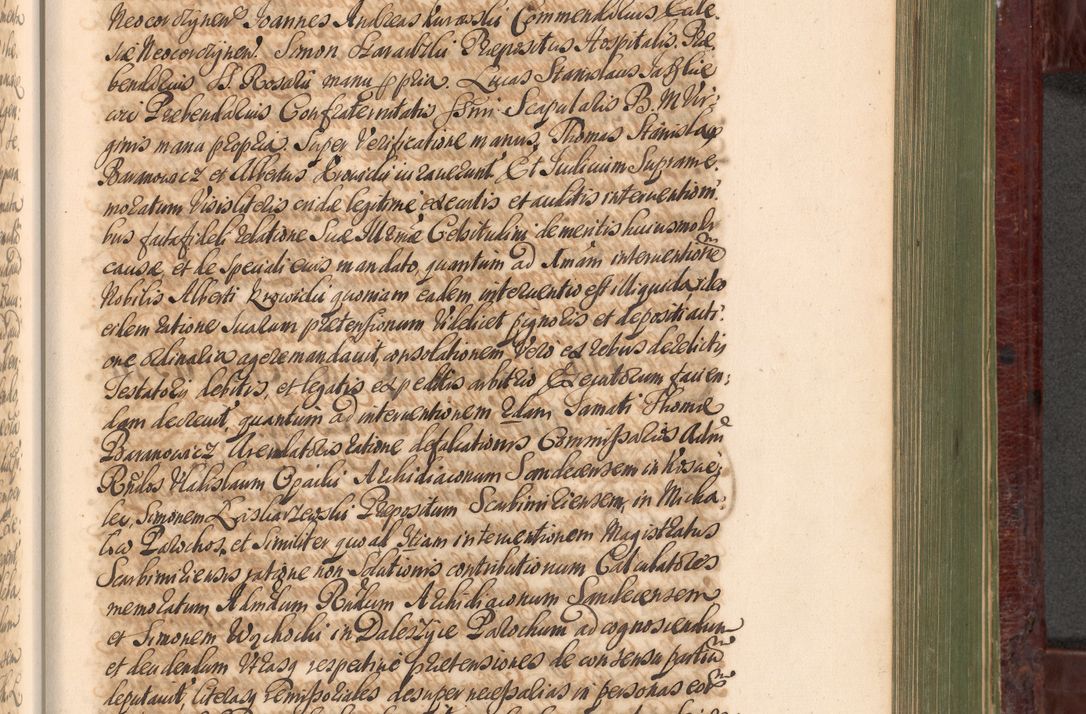 Neocordÿnen. Joannes Andreas Kurowski Commendarius Eccle
siæ Neocordÿnen. Simon Skarabski Præpositus Hospitalis. Præ
bendarius S. Rosalii manu ppria. Lucas Stanislaus
Præbendarius Confraternitatis Ssmi Scapularis B. M. Vir,
ginis manu propria. Super Verificatione manus Thomas Stanislaus
Baranowicz et Albertus Krowicki iuraverunt. Et Judicium Supreme.
moratum Visis literis eiusdæ legitime executis et auditis intervention,
bus facta fideli relatione Suæ Illrmæ Celsitudini de meritis huiusmodi
causæ, et de speciali eius mandato, quantum ad 1mam interventionem
Nobilis Alberti Krowicki quoniam eadem interventio est illiquida ideo
eidem ratione suarum prætensionum videlicet pignoris et depositi acti,
one ordinaria agere mandavit, consolationem vero ex rebus derelictis
Testatoris debitis, et legatis expeditis arbitrio Executorum facien,
dam decrevit, quantum ad interventionem 2dam Famati Thomæ
Baranowicz Arendatoris ratione defalcationis Commissarios Adm
Rndos Vladislaum Opacki Archidiaconum Sandecensem in
Simonem Præpositum Scarbimiriensem, in Micha,
low Parochos, et similiter quo ad 3tiam interventionem Magistratus
Scarbimiriensis ratione non Solutionis contributionum Calculatores
memoratum Admdum Rndum Archidiaconum Sandecensem
et Simonem Wychocki in Daleszyce Parochum ad cognoscendum
et decidendum Utrasq respective prætensiones de consensu partium
deputavit, literasq remissoriales desuper necessarias in personas eorum